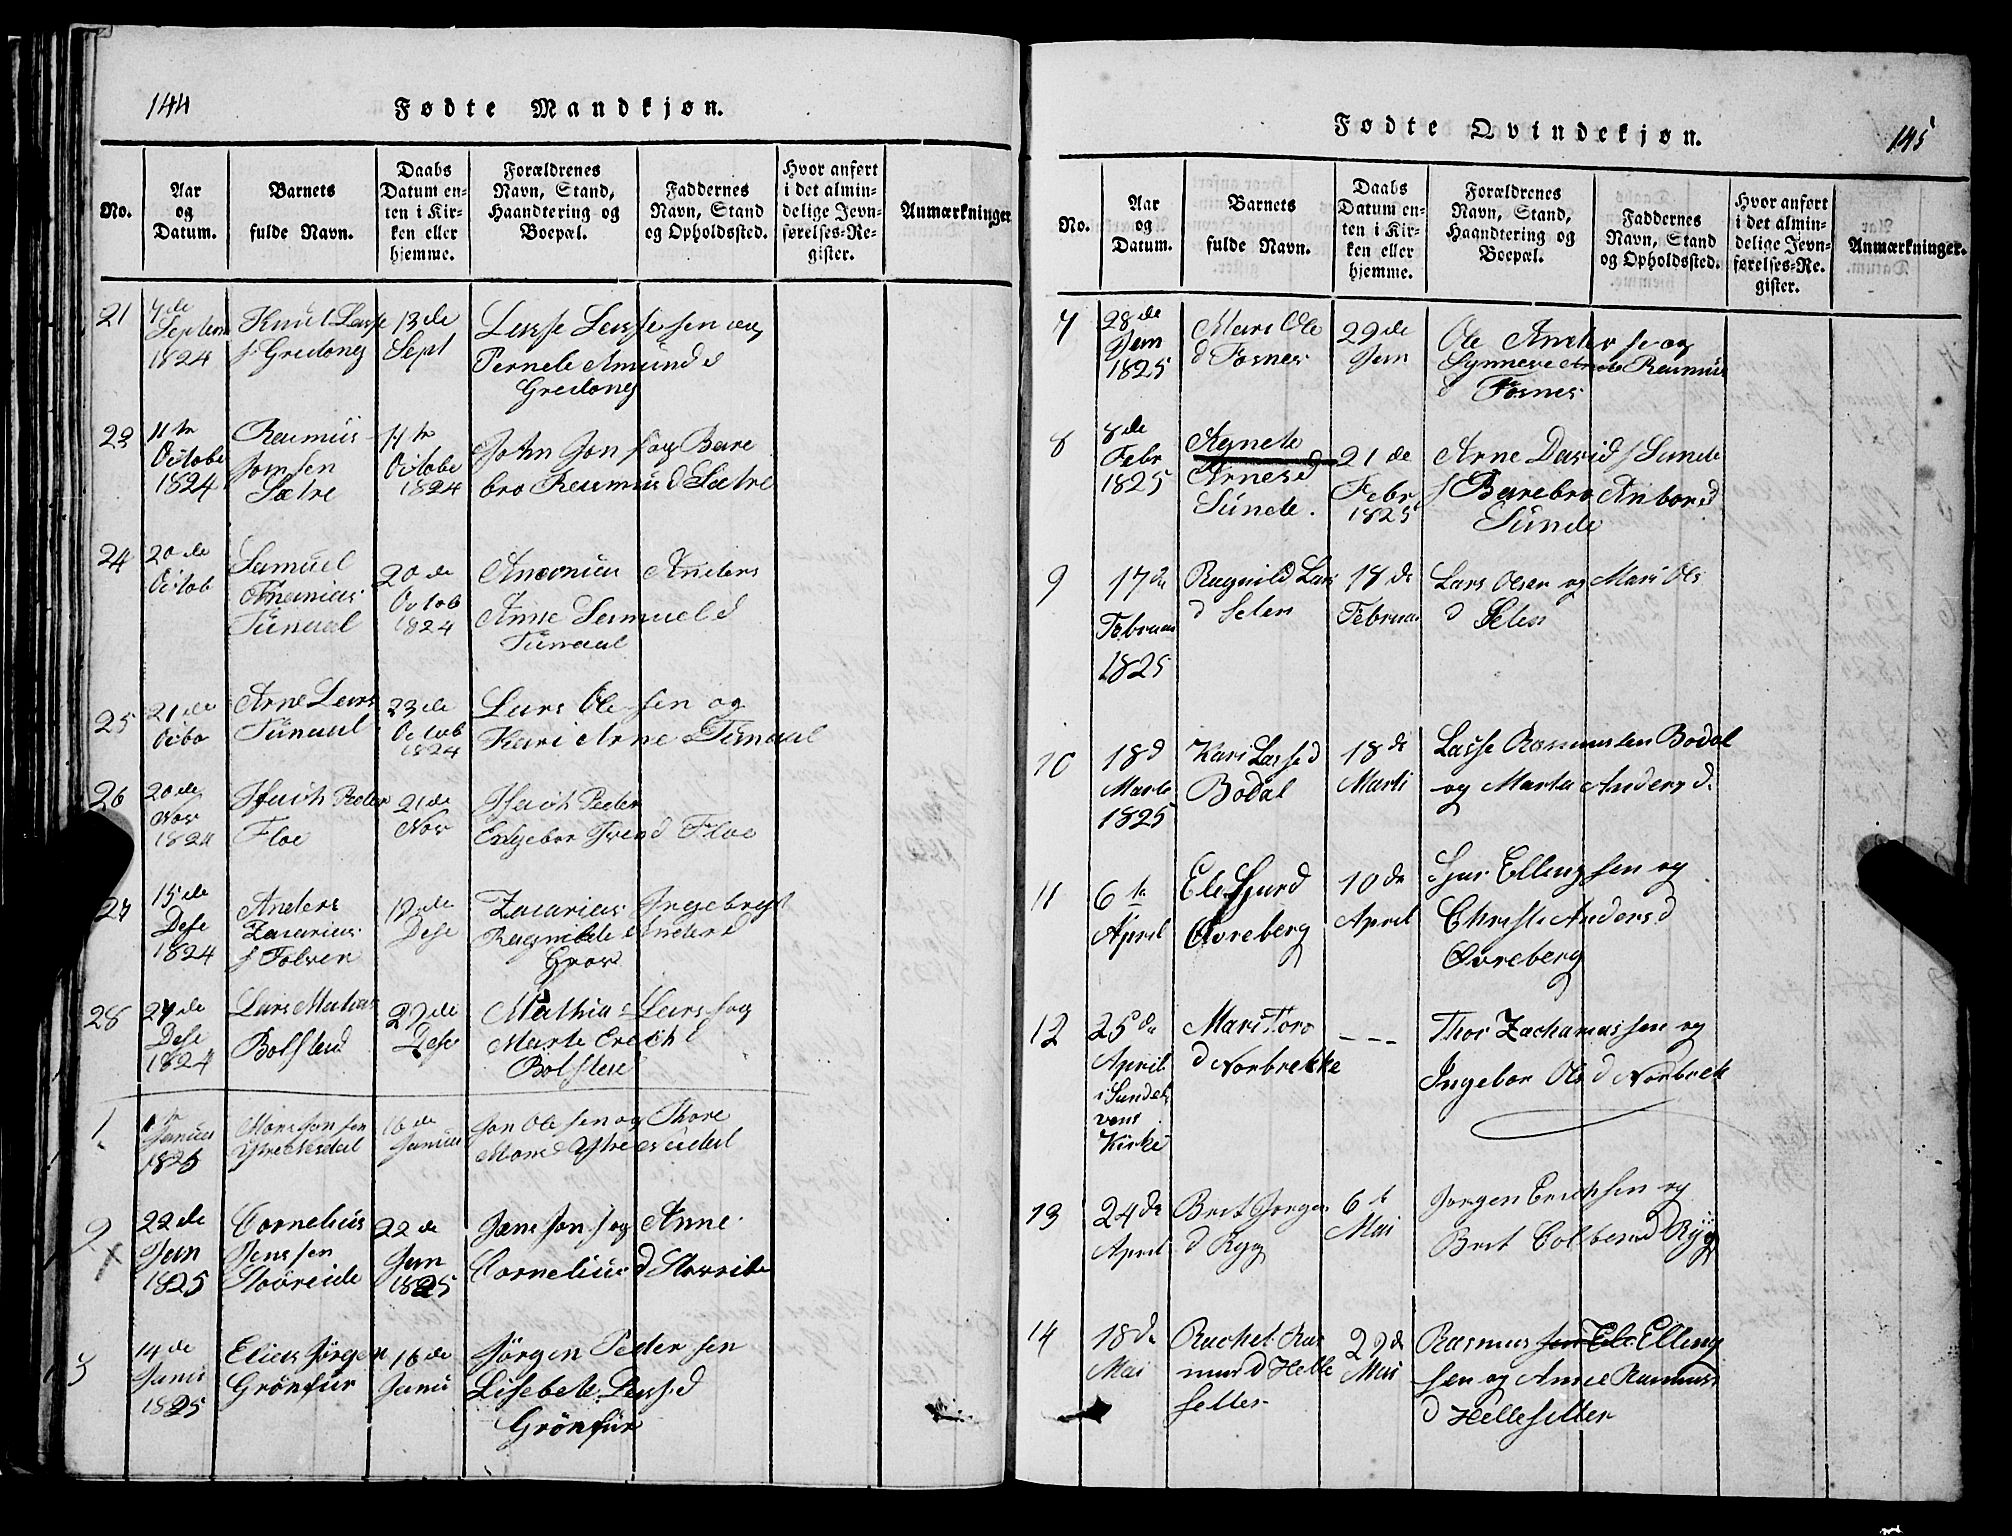 144
Fødte Mandkjøn.
No.
Aar og Datum.
Barnets fulde Navn.
Daabs Datum enten i Kirken eller hjemme.
Forældrenes Navn, Stand, Haandtering og Boepæl.
Faddernes Navn, Stand og Opholdssted.
Hvor anført i det almindelige Jevnførelses-Register.
Anmærkninger
21
7de
1824
Knut Lasse
s Gredong
13de
Sept
Lasse Lassesen og
Pernele Amund d
Gredong
23
11te
Octobe
1824
Rasmus
Jonsen
Sætre
11te
Octobe
1824
John Jon s og Bare
bro Rasmus d Sætre
24
20de
Octob
Samuel
Ananias
Tunaal
20de
Octob
1824
Ananias Anders
Anne Samuel d
Tunaal
25
21de
Octbo
Arne Lars
Tunaal
23de
Octob
1824
Lars Ole sen og
Kari Arne d Tunaal
26
20de
Nov
1824
Isach Peder
Floe
21de
Nov
Isach Peder
Engebor Iver d Floe
27
15de
Dese
1824
Anders
Zacarias
s Folven
Dese
Zacarias Ingebregt
Ragnilde Anders d
Grov
28
Dese
1824
Lars Mathias
Bolstad
27de
Dese
Mathias Lars s og
Marte Erich d
Bolstad
1
1825
Mons Jonsen
16de
Januar
Jon Olesen og Thore
Mons d
2
22de
Jan
1825
Cornelius
Jenssen
Stoöreide
22de
Jan
1825
Jæns Jon s og Anne
Cornelius d
3
14de
Janu
1825
Elias Jørgen
Grönfur
16de
Janu
Jørgen Peder sen
Lisebete Lass d
Grönfur
Fødte Qvindekjøn.
145
No.
Aar og Datum.
Barnets fulde Navn.
Daabs Datum enten i Kirken eller hjemme.
Forældrenes Navn, Stand, Haandtering og Boepæl.
Faddernes Navn, Stand og Opholdssted.
Hvor anført i det almindelige Jevnførelses-Register.
Anmærkninger.
7
28de
Jan
1825
Mari Ole
d Fosnes
29de
Jan
Ole Anders s og
Synneve Rasmus
d Fosnes
8
8de
Febr
1825
Agnete
Arnes d
Sunde.
21de
Febr
1825
Arne David s Sunde
Barebro Anbor d
Sunde
9
17de
Februar
1825
Ragnild Lars
d Selen
18de
Februar
Lars Olsen og Mari Ols
d Selen
10
18d
Marts
1825
Kari Lasse d
Bodal
18de
Marts
Lasse Rasmusen Bodal
og Marta Anders d.
11
6te
April
Øvreberg
10de
April
Ellingsen og
Anders d
Øvreberg
12
25de
April
i Sundel
vens
Kirke
Mari Toro
d Norbrekke
---
Thor Zachariassen og
Ingebor Ole d Norbrek
13
24de
April
Brit Jorgen
d Ryg
6t
Mai
Jorgen Erichsen og
Brit Colben d Ryg
14
18de
Mai
Rachel Ras
mus d Helle
setter
29de
Mai
Rasmus Elling
sen og Anne Rasmus
d Hellesetter